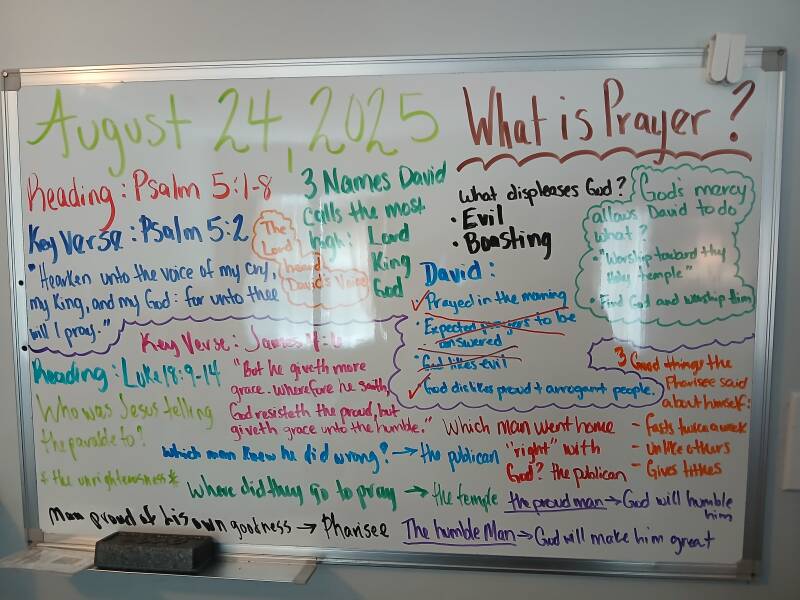 August 24, 2025
What is Prayer?
Reading: Psalm 5:1-8
Key Verse: Psalm 5:2
"Hearken unto the voice of my cry,
my King, and my God: for unto thee
will I pray."
The
Lord
heard
David's Voice
3 Names David
calls the most
high: Lord
King
God
What displeases God?
• Evil
• Boasting
God's mercy
allows David to do
what?
• "Worship toward thy
Holy temple"
• Find God and worship him
David:
✓ Prayed in the morning
• Expected prayers to be
answered
• God likes evil
✓ God dislikes proud + arrogant people.
Key Verse: James 4:6
"But he giveth more
grace. Wherefore he saith,
God resisteth the proud, but
giveth grace unto the humble."
Reading: Luke 18:9-14
Who was Jesus telling
the parable to?
* the unrighteousness *
3 Good things the
Pharisee said
about himself:
- Fasts twice a week
- Unlike others
- Gives tithes
Which man went home
"right" with
God? the publican
Which man knew he did wrong? → the publican
Where did they go to pray → the temple
Man proud of his own goodness → Pharisee
the proud man → God will humble
him
The humble Man → God will make him great